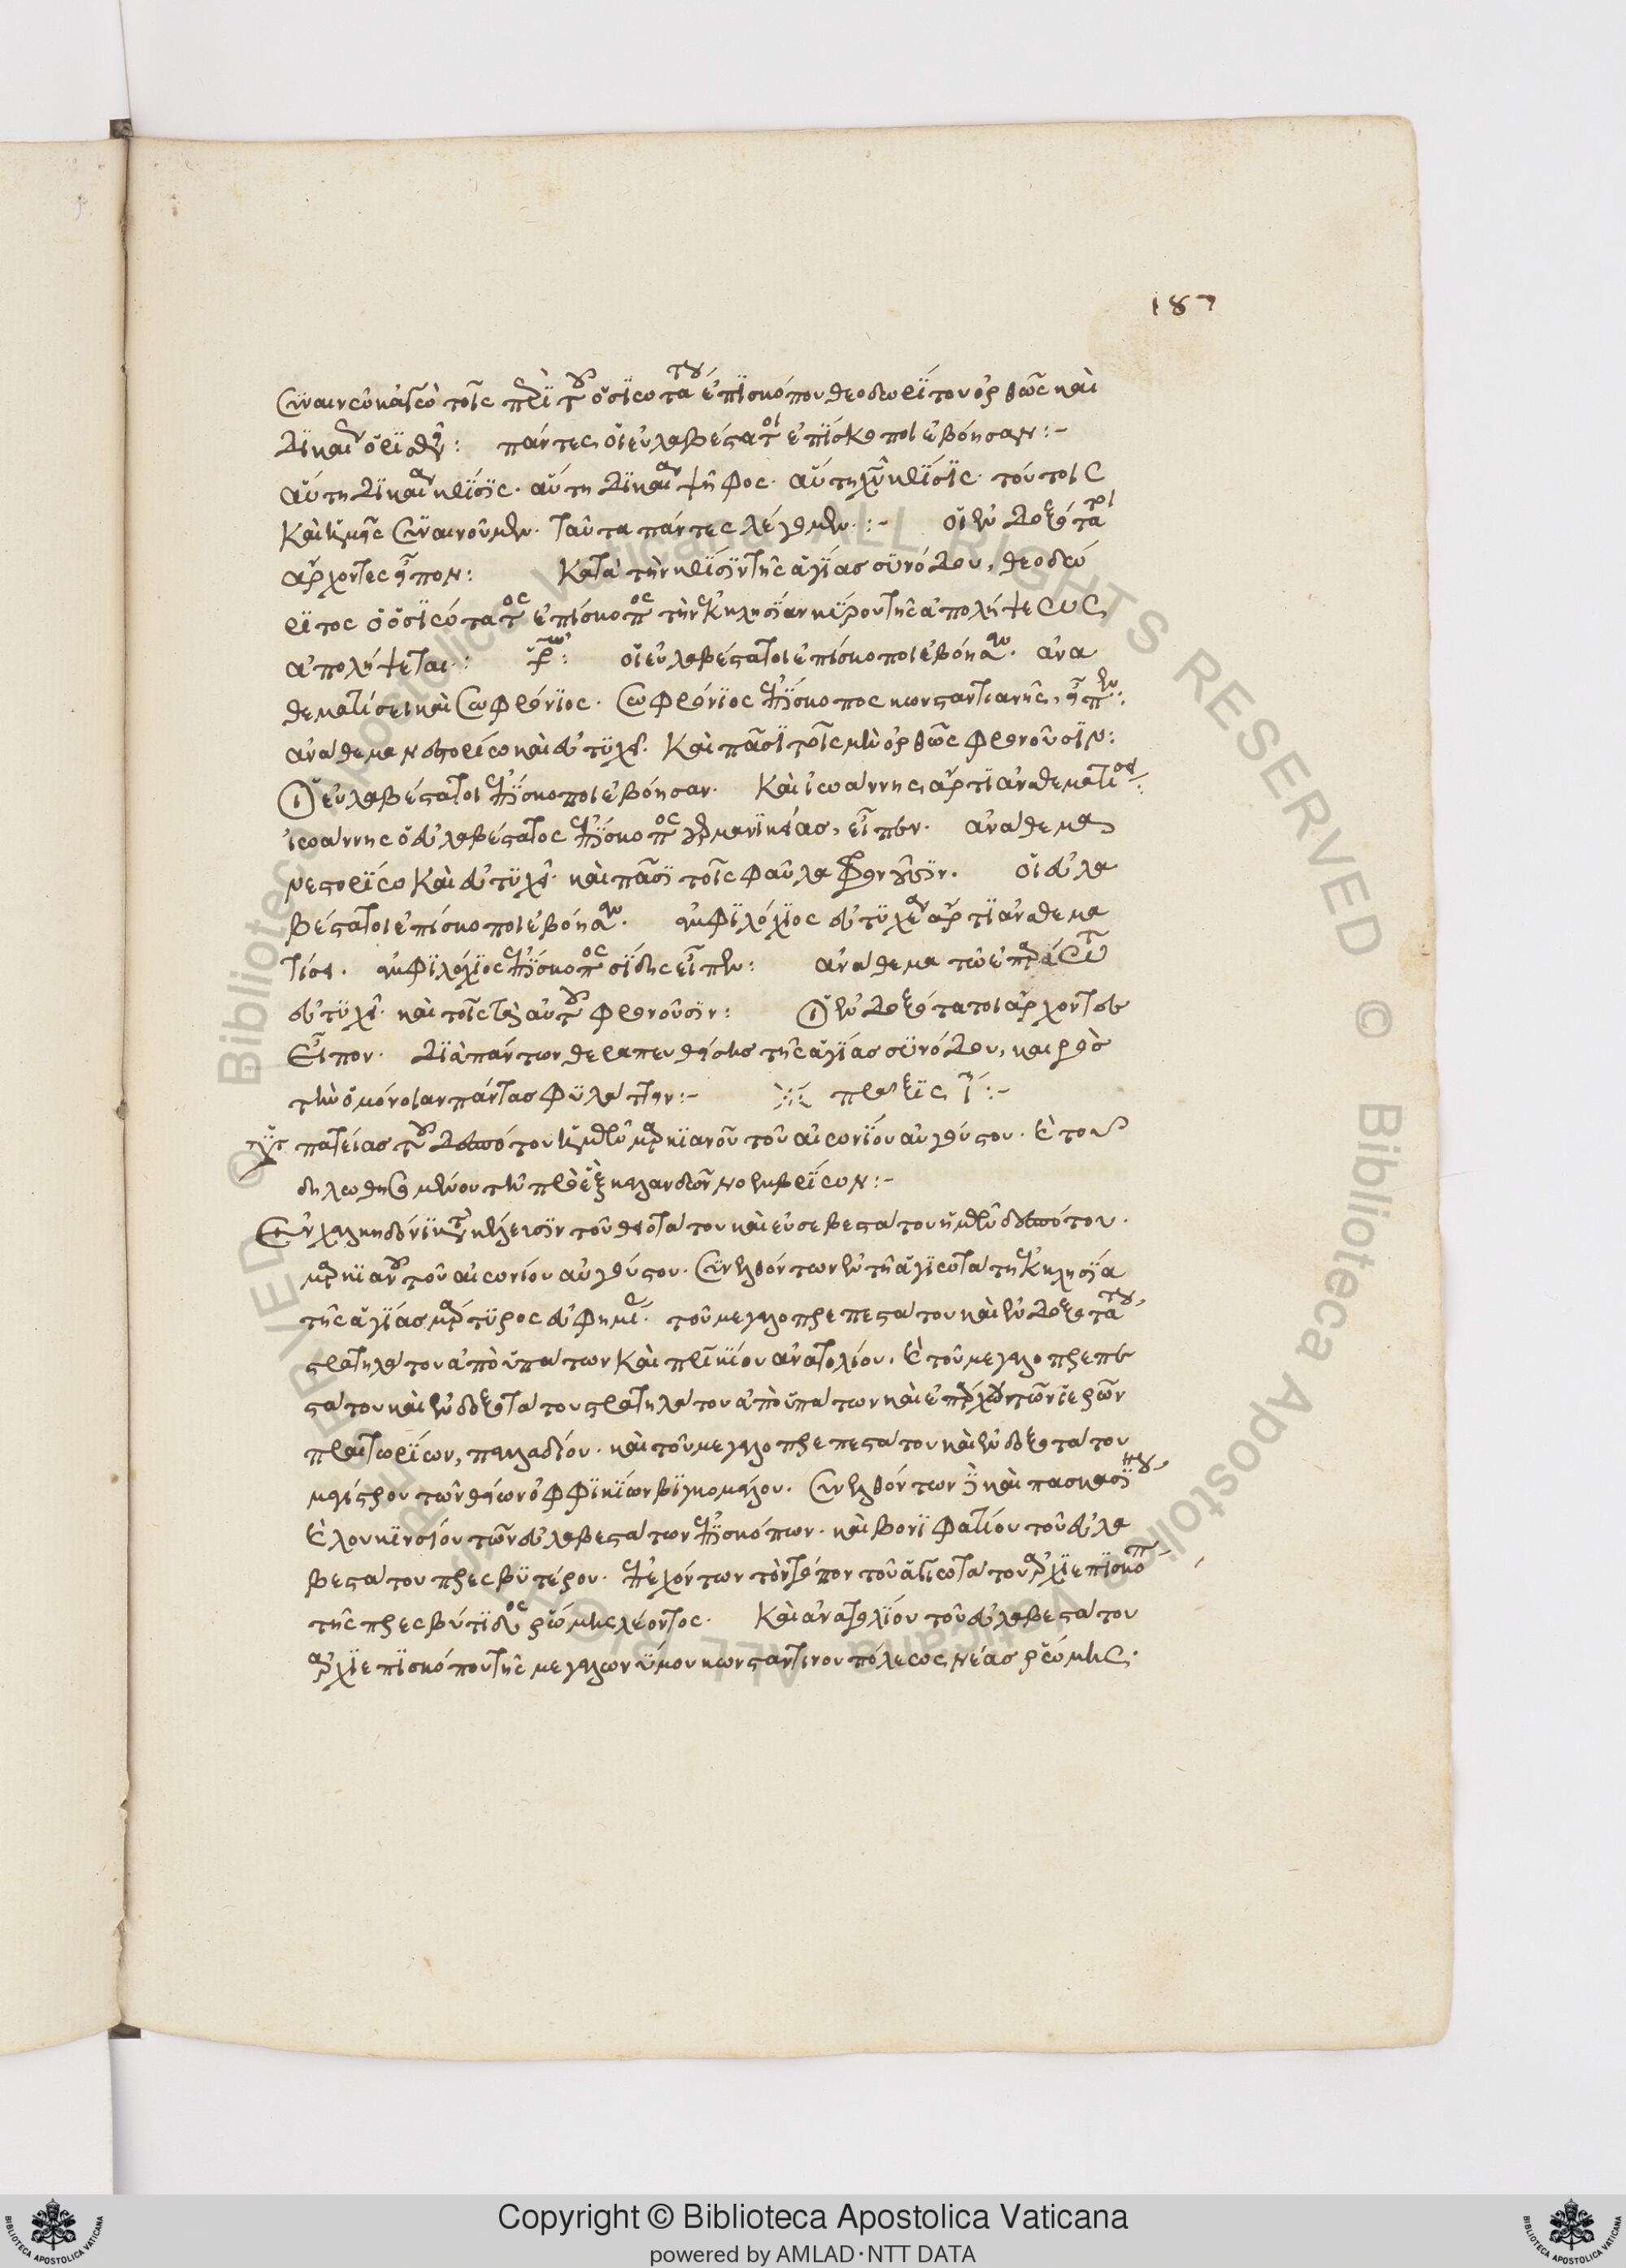 187
συναινῶ κἀγὼ τοῖς περὶ τοῦ ὁσιωτάτου ἐπισκόπου θεοδωρίτου ὀρθῶς καὶ
δικαίως ὁρισθεῖσιν: πάντες οἱ εὐλαβέστατοι ἐπίσκοποι ἐβόησαν:-
αὕτη δικαία κρίσις. αὕτη δικαία ψῆφος. αὕτη χυ κρίσις. τούτοις
καὶ ἡμεῖς συναινοῦμεν. ταῦτα πάντες λέγομεν:- οἱ ἐνδοξότατοι
ἄρχοντες εἶπον: κατὰ τὴν κρίσιν τῆς ἁγίας συνόδου, θεοδώ
ριτος ὁ ὁσιώτατος ἐπίσκοπος τὴν ἐκκλησίαν κύρου τῆς ἀπολήψεως
ἀπολήψεται: οἱ εὐλαβέστατοι ἐπίσκοποι ἐβόησαν. ἀνα
θεματίσει καὶ σωφρόνιος. σωφρόνιος ἐπίσκοπος κωνσταντιανῆς, εἶπεν:
ἀνάθεμα νεστορίω καὶ εὐτυχεῖ. καὶ πᾶσι τοῖς μὴ ὀρθῶς φρονοῦσιν:
οἱ εὐλαβέστατοι ἐπίσκοποι ἐβόησαν. καὶ ἰωάννης ἄρτι ἀναθεματίσει:
ἰωάννης ὁ εὐλαβέστατος ἐπίσκοπος γερμανικείας, εἶπεν. ἀνάθεμα
νεστορίω καὶ εὐτυχεῖ. καὶ πᾶσι τοῖς φαῦλα φρονοῦσιν. οἱ εὐλα
βέστατοι ἐπίσκοποι ἐβόησαν. ἀμφιλόχιος εὐτυχέα ἄρτι ἀναθεμα
τίσει. ἀμφιλόχιος ἐπίσκοπος σίδης εἶπεν: ἀνάθεμα τῶ ἐπαράτω
εὐτυχεῖ. καὶ τοῖς τὰ αὐτοῦ φρονοῦσιν: οἱ ἐνδοξότατοι ἄρχοντες
εἶπον. διὰ πάντων θεραπευθείσης τῆς ἁγίας συνόδου, καιρὸς
τὴν ὁμόνοιαν πάντας φυλάττειν:- πρᾶξις ι:-
ὑπατείας τοῦ δεσπότου ἡμῶν μαρκιανοῦ τοῦ αἰωνίου αὐγούστου. καὶ τοῦ
δηλωθησομένου τῆ πρὸ ἓξ καλανδῶν νοεμβρίων:-
ἐν χαλκηδόνι κατὰ κέλευσιν τοῦ θειοτάτου καὶ εὐσεβεστάτου ἡμῶν δεσπότου.
μαρκιανοῦ τοῦ αἰωνίου αὐγούστου. συνελθόντων ἐν τῆ ἁγιωτάτη ἐκκλησία
τῆς ἁγίας μάρτυρος εὐφημίας. τοῦ μεγαλοπρεπεστάτου καὶ ἐνδοξοτάτου
στρατηλάτου ἀπὸ ὑπάτων καὶ πατρικίου ἀνατολίου. καὶ τοῦ μεγαλοπρεπε
στάτου καὶ ἐνδοξοτάτου στρατηλάτου ἀπὸ ὑπάτων καὶ ἐπάρχου τῶν ἱερῶν
πραιτωρίων, παλλαδίου. καὶ τοῦ μεγαλοπρεπεστάτου καὶ ἐνδοξοτάτου
μαγίστρου τῶν θείων ὀφφικίων βιγκομάλου. συνελθόντων δὲ καὶ πασκασίνου
καὶ λουκινσίου τῶν εὐλαβεστάτων ἐπισκόπων. καὶ βονιφατίου τοῦ εὐλα
βεστάτου πρεσβυτέρου. ἐπεχόντων τὸν τόπον τοῦ ἁγιωτάτου ἀρχιεπισκόπου
τῆς πρεσβύτιδος ῥώμης λέοντος. καὶ ἀνατολίου τοῦ εὐλαβεστάτου
ἀρχιεπισκόπου τῆς μεγαλωνύμου κωνσταντινουπόλεως νέας ῥώμης.
© Biblioteca Apostolica Vaticana ALL RIGHTS RESERVED
Copyright © Biblioteca Apostolica Vaticana
powered by AMLAD·NTT DATA